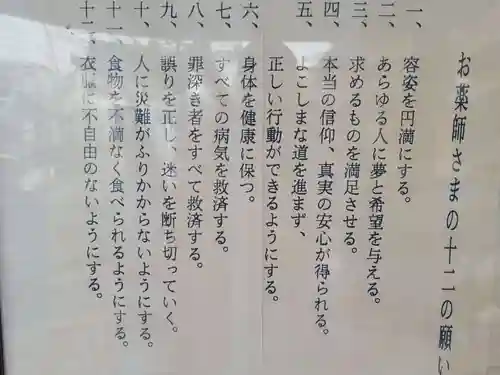 お薬師さまの十二の願い
一、容姿を円満にする。
二、あらゆる人に夢と希望を与える。
三、求めるものを満足させる。
四、本当の信仰、真実の安心が得られる。
五、よこしまな道を進まず、
正しい行動ができるようにする。
六、身体を健康に保つ。
七、すべての病気を救済する。
八、罪深き者をすべて救済する。
九、誤りを正し、迷いを断ち切っていく。
十、人に災難がふりかからないようにする。
十一、食物を不満なく食べられるようにする。
十二、衣服に不自由のないようにする。